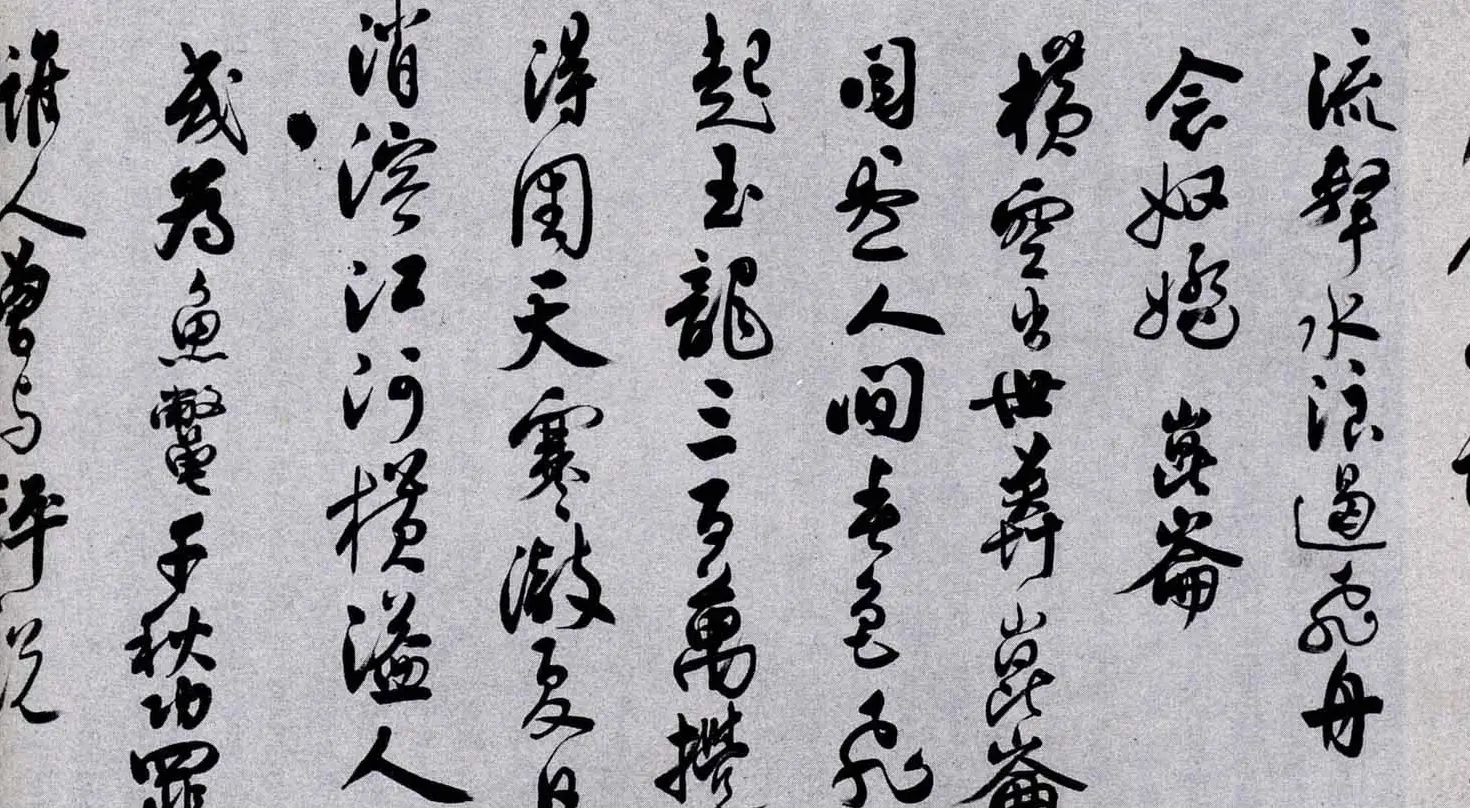 流擊水浪遏飛舟
念奴嬌 崑崙
橫空出世莽崑崙
閱盡人間春色飛
起玉龍三百萬攪
得周天寒澈夏日
消溶江河橫溢人
或為魚鼈千秋功罪
誰人曾与評說